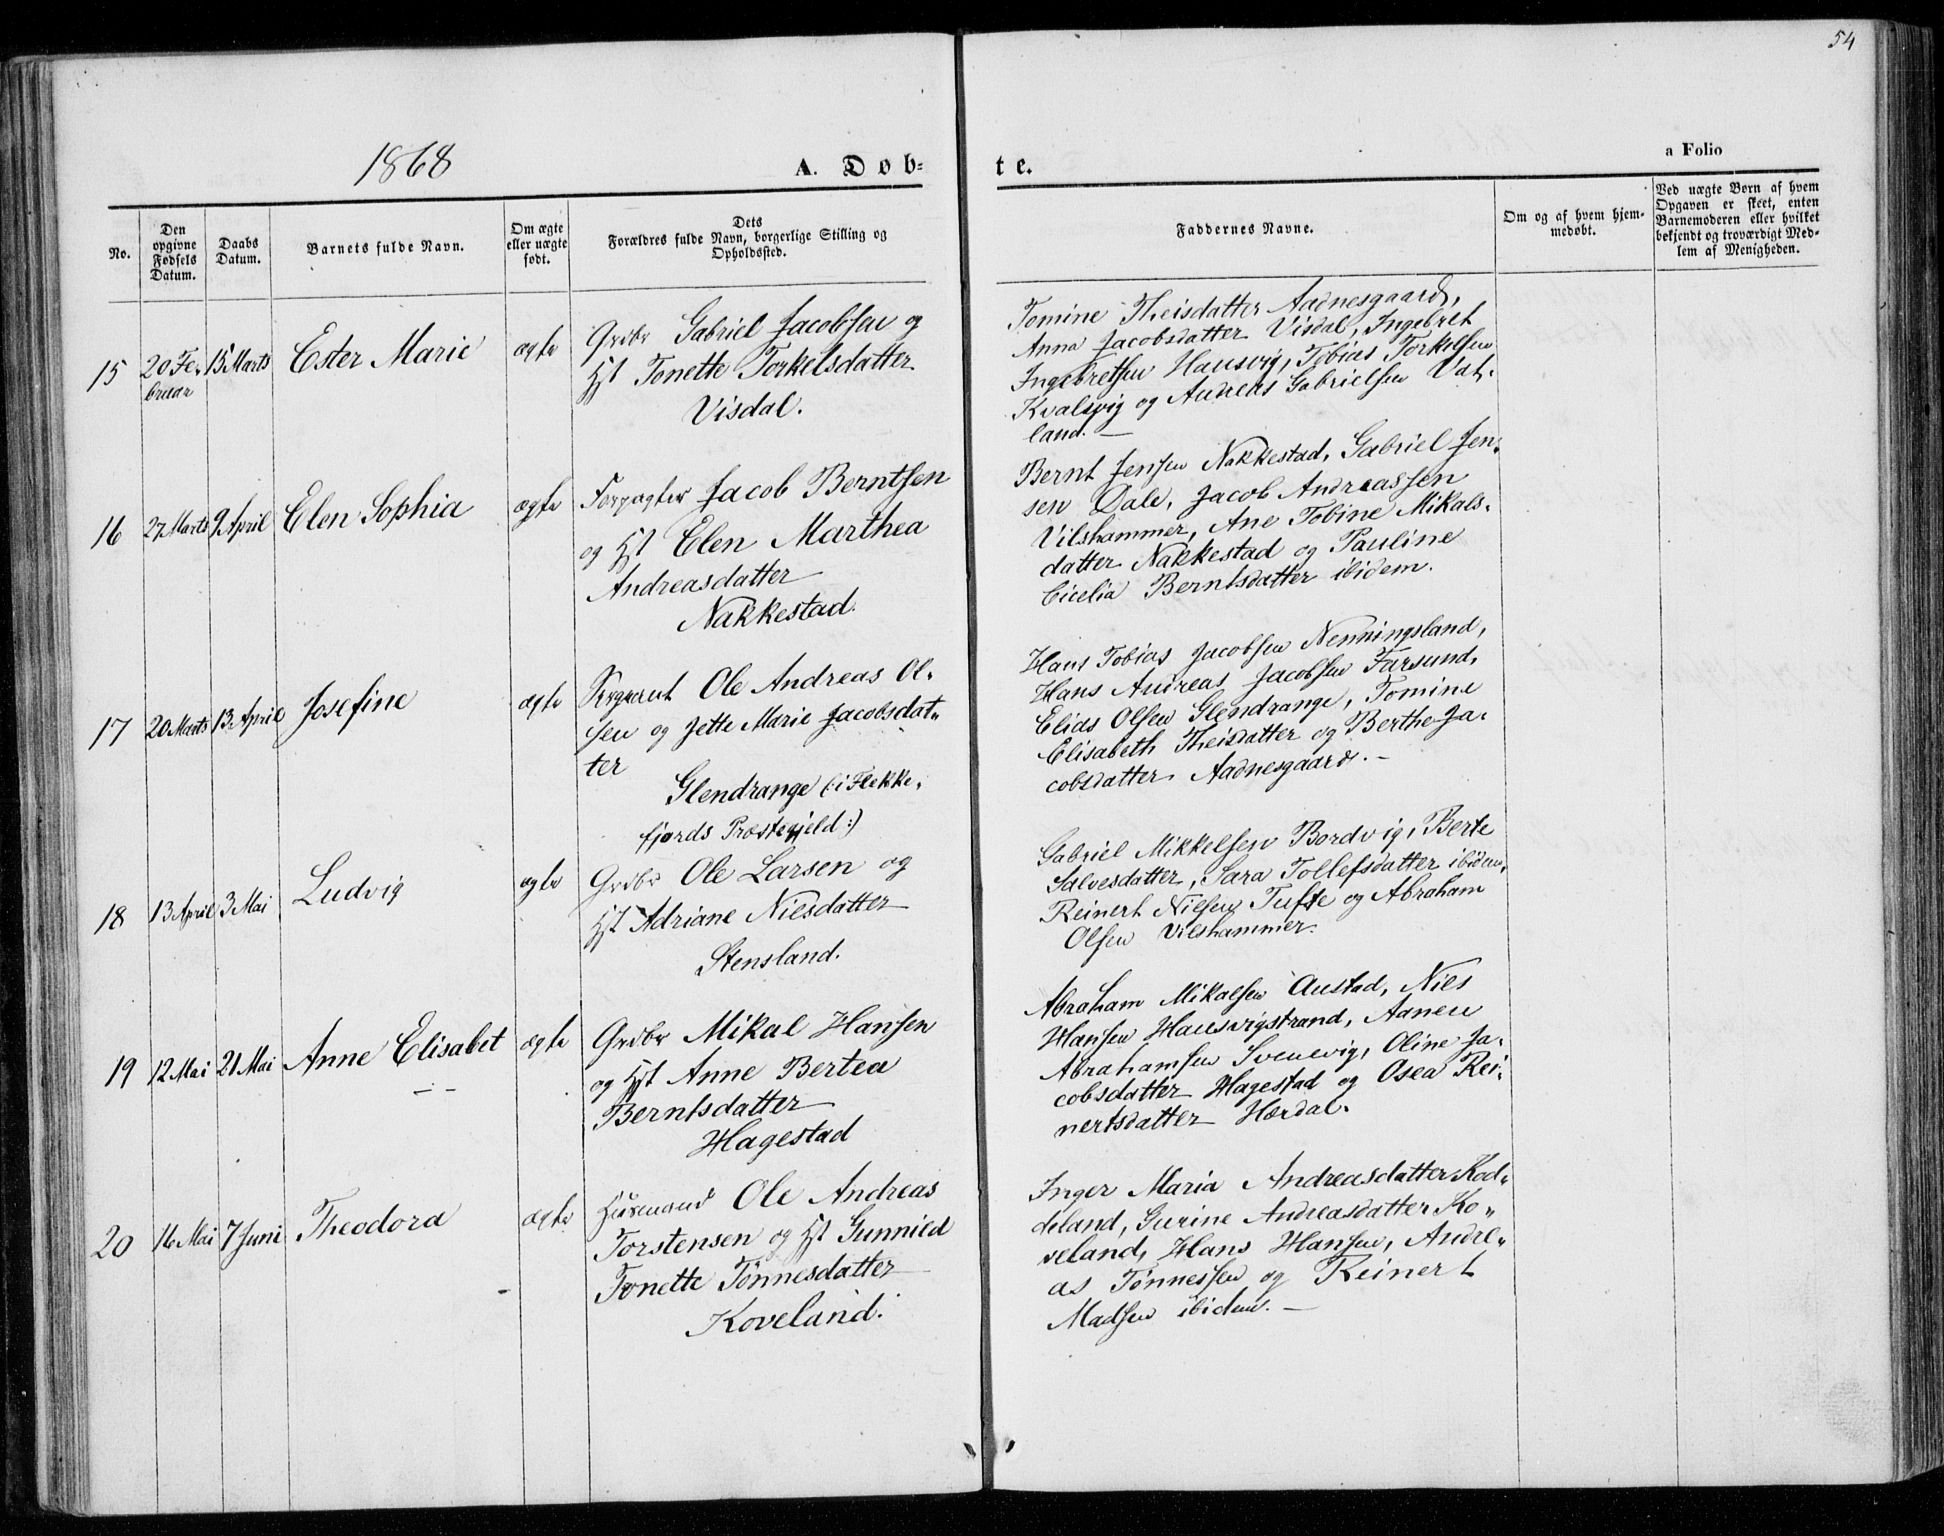 54
1868
A. Døb-
te.
a Folio
No.
Den
opgivne
Fødsels
Datum.
Daabs
Datum.
Barnets fulde Navn.
Om ægte
eller uægte
født.
Dets
Forældres fulde Navn, borgerlige Stilling og
Opholdssted.
Faddernes Navne.
Om og af hvem hjem-
medøbt.
Ved uægte Børn af hvem
Opgaven er skeet, enten
Barnemoderen eller hvilket
bekjendt og troværdigt Med-
lem af Menigheden.
15
20 Fe-
bruar
15 Marts
Ester Marie
ægte
Grdbr Gabriel Jacobsen og
Hst Tonette Torkelsdatter
Visdal.
Tomine Theisdatter Aadnesgaard,
Anna Jacobsdatter Visdal, Ingebret
Ingebretsen Hausvig, Tobias Torkelsen
Kvalsvig og Andreas Gabrielsen Vat-
land. —
16
27 Marts
9 April
Elen Sophia
ægte
Forpagter Jacob Berntsen
og Hst Elen Marthea
Andreasdatter
Nakkestad.
Bernt Jensen Nakkestad, Gabriel Jen-
sen Dale, Jacob Andreassen
Vilshammer, Ane Tobine Mikals-
datter Nakkestad og Pauline
Cicelia Berntsdatter ibidem.
17
20 Marts
13 April
Josefine
ægte
Sergeant Ole Andreas Ol-
sen og Jette Marie Jacobsdat-
ter
Glendrange (: i Flekke-
fjords Præstegjeld :)
Hans Tobias Jacobsen Nenningsland,
Hans Andreas Jacobsen Farsund,
Elias Olsen Glendrange, Tomine
Elisabeth Theisdatter og Berthe Ja-
cobsdatter Aadnesgaard. -
18
13 April
3 Mai
Ludvig
ægte
Grdbr Ole Larsen og
Hst Adriane Nielsdatter
Stensland.
Gabriel Mikkelsen Bordvig, Berte
Salvesdatter, Sara Tollefsdatter ibidem,
Reinert Nilsen Tufte og Abraham
Olsen Vilshammer.
19
12 Mai
21 Mai
Anne Elisabet
ægte
Grdbr Mikal Hansen
og Hst Anne Bertea
Berntsdatter
Hagestad
Abraham Mikalsen Austad, Niels
Hansen Hausvigstrand, Aanen
Abrahamsen Svenevig, Oline Ja-
cobsdatter Hagestad og Osea Rei-
nertsdatter Hærdal.
20
16 Mai
7 Juni
Theodora
ægte
Husmand Ole Andreas
Torstensen og Hst Gunnild
Tonette Tønnesdatter
Koveland.
Inger Maria Andreasdatter Kad-
deland, Gurine Andreasdatter Ko-
veland, Hans Hansen, Andre-
as Tønnessen og Reinert
Madsen ibidem. —